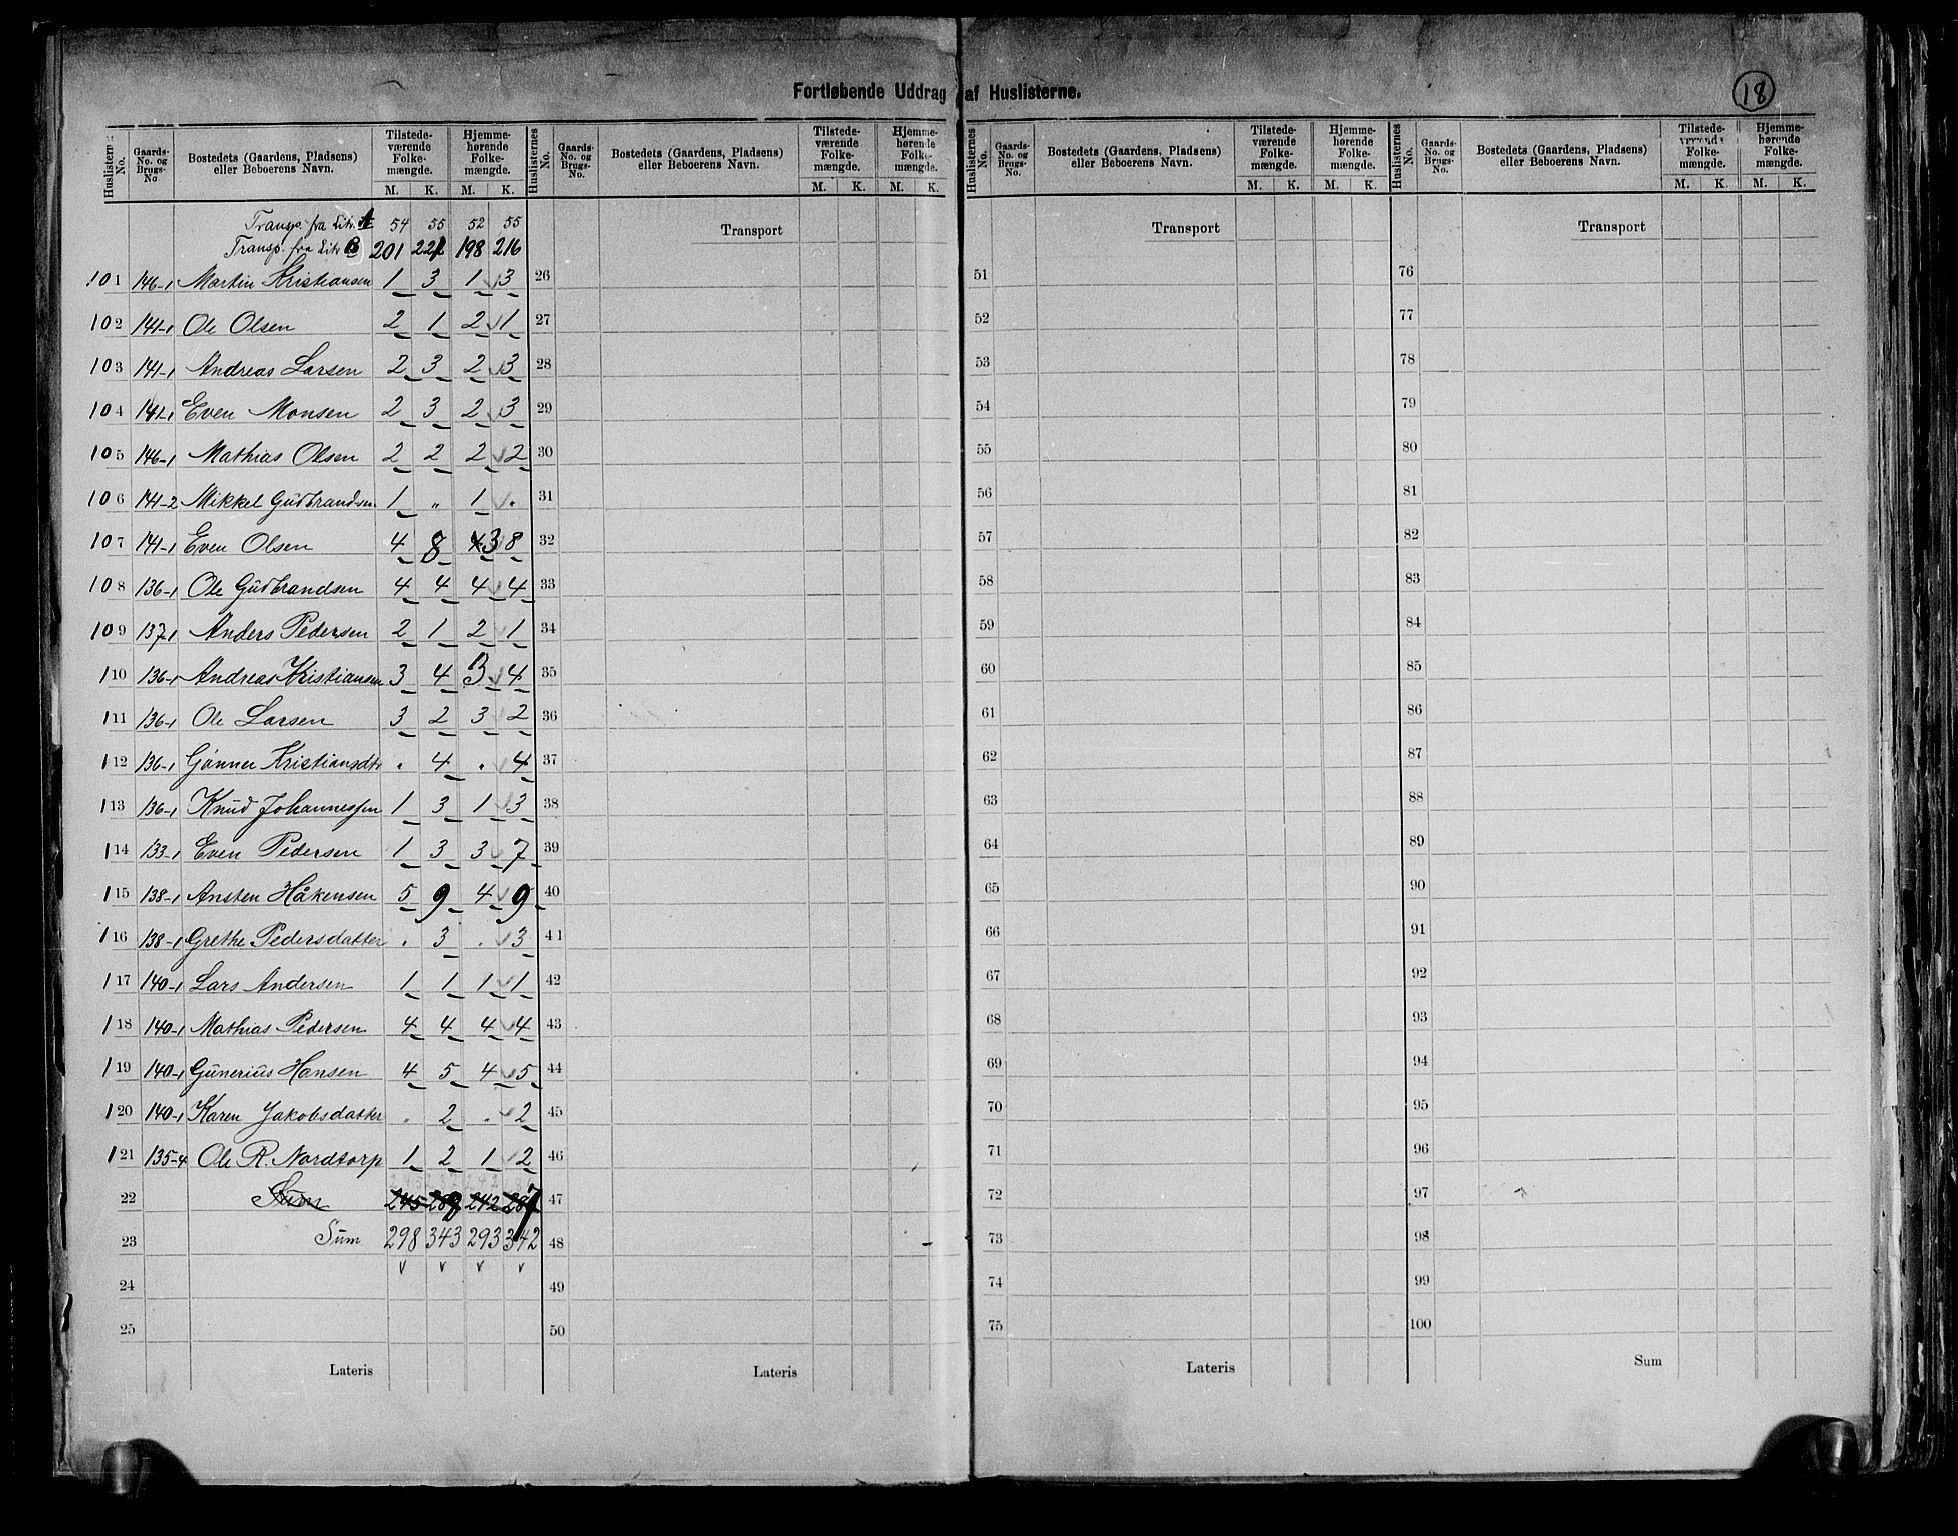 Fortløbende Uddrag af Huslisterne.
18
Huslisternes No. Gaards-No. og Brugs-No Bostedets (Gaardens, Pladsens) eller Beboerens Navn. Tilstedeværende Folkemængde. M. K. Hjemmehørende Folkemængde. M. K.
Transp. fra Litr. A 54 55 52 55
Transp. fra Litr B 201 221 198 216
101 146-1 Martin Kristiansen 1 3 1 3
102 141-1 Ole Olsen 2 1 2 1
103 141-1 Andreas Larsen 2 3 2 3
104 141-1 Even Monsen 2 3 2 3
105 146-1 Mathias Olsen 2 2 2 2
106 141-2 Mikkel Gudbrandsen 1 " 1 "
107 141-1 Even Olsen 4 8 4 3 8
108 136-1 Ole Gudbrandsen 4 4 4 4
109 137-1 Anders Pedersen 2 1 2 1
110 136-1 Andreas Kristiansen 3 4 3 4
111 136-1 Ole Larsen 3 2 3 2
112 136-1 Gønner Kristiansdtr . 4 . 4
113 136-1 Knud Johannessen 1 3 1 3
114 133-1 Even Pedersen 1 3 3 7
115 138-1 Ansten Håkensen 5 9 4 9
116 138-1 Grethe Pedersdatter . 3 . 3
117 140-1 Lars Andersen 1 1 1 1
118 140-1 Mathias Pedersen 4 4 4 4
119 140-1 Gunerius Hansen 4 5 4 5
120 140-1 Karen Jakobsdatter . 2 . 2
121 135-4 Ole R. Nordtorp 1 2 1 2
22 Sum 245 242 287
23 Sum 298 343 293 342
24
25
Lateris
Huslisternes No. Gaards-No. og Brugs-No. Bostedets (Gaardens, Pladsens) eller Beboerens Navn. Tilstedeværende Folkemængde. M. K. Hjemmehørende Folkemængde. M. K.
Transport
26
27
28
29
30
31
32
33
34
35
36
37
38
39
40
41
42
43
44
45
46
47
48
49
50
Lateris
Huslisternes No. Gaards-No. og Brugs-No. Bostedets (Gaardens, Pladsens) eller Beboerens Navn. Tilstedeværende Folkemængde. M. K. Hjemmehørende Folkemængde. M. K.
Transport
51
52
53
54
55
56
57
58
59
60
61
62
63
64
65
66
67
68
69
70
71
72
73
74
75
Lateris
Huslisternes No. Gaards-No. og Brugs-No. Bostedets (Gaardens, Pladsens) eller Beboerens Navn. Tilstedeværende Folkemængde. M. K. Hjemmehørende Folkemængde. M. K.
Transport
76
77
78
79
80
81
82
83
84
85
86
87
88
89
90
91
92
93
94
95
96
97
98
99
100
Sum